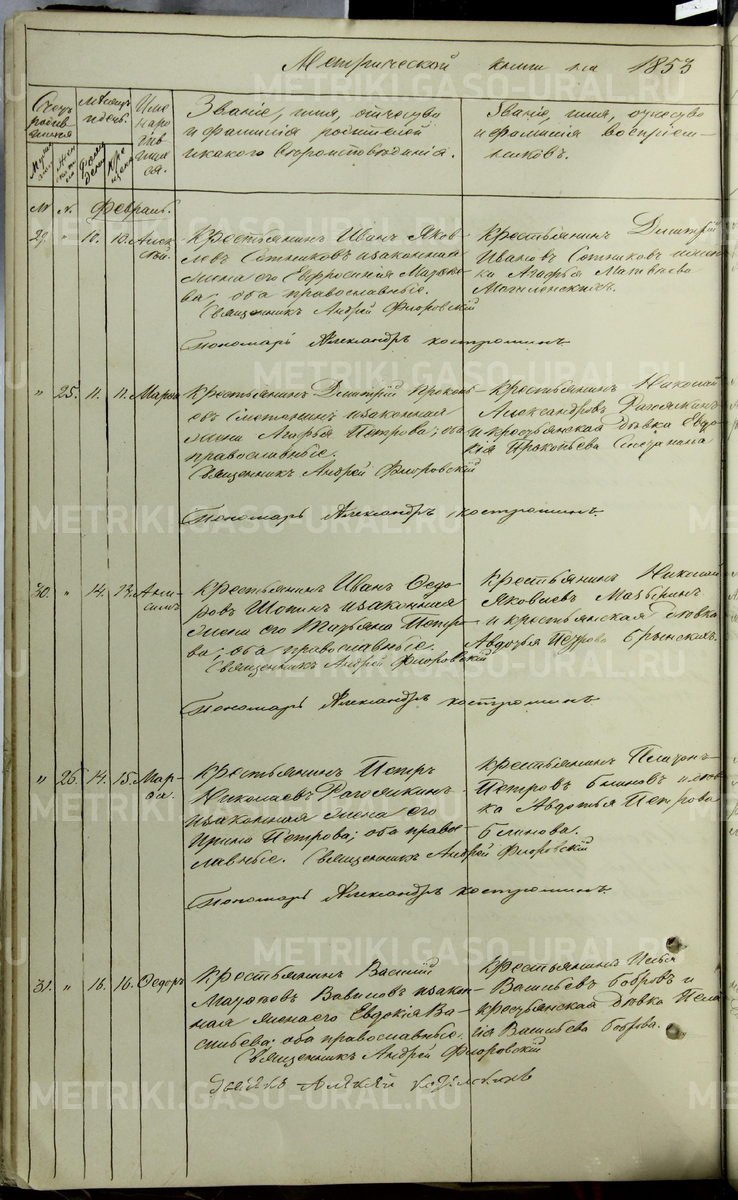 Метрической книги на 1853
Счетъ родив-шихся
Мѣсяцъ и день.
Име на ро див ших ся.
Званіе, имя, отчество
и фамилія родителей
и какого Вѣроисповѣданія.
Званіе, имя, отчество
и фамилія воспріем-
никовъ.
Мужес.
Женск.
Рожденія
Крещенія
М. №. Февраль.
29. " 10. 10. Алек-
сѣй.
Крестьянинъ Иванъ Яков-
левъ Сотниковъ и законная
жена его Евфросинія
ва; оба православные.
Священникъ Андрей Флоровскій
Пономарь Александръ Костроминъ.
Крестьянинъ Дмитрій
Ивановъ Сотниковъ и
Агафья Матвѣева
" 25. 11. 11. Марья
Крестьянинъ Дмитрій Прокопь-
евъ Сметанинъ и законная
жена Агафья Петрова; оба
православные.
Священникъ Андрей Флоровскій
Пономарь Александръ Костроминъ.
Крестьянинъ Николай
Александровъ
и крестьянская дѣвка Евдо-
кія Прокопьева Сметанина
30. " 14. 13. Ани-
симъ
Крестьянинъ Иванъ Ѳедо-
ровъ и законная
жена его Татьяна Петро-
ва; оба православные.
Священникъ Андрей Флоровскій
Пономарь Александръ Костроминъ.
Крестьянинъ Николай
Яковлевъ
и крестьянская дѣвка
Авдотья Петрова Брынскихъ.
" 26. 14. 15. Мар-
ѳа.
Крестьянинъ Петръ
Николаевъ
и законная жена его
Ирина Петрова; оба право-
славные. Священникъ Андрей Флоровскій
Пономарь Александръ Костроминъ.
Крестьянинъ Платонъ
Петровъ Блиновъ и дѣв-
ка Авдотья Петрова
Блинова.
31. " 16. 16. Ѳедоръ
Крестьянинъ Василій
Вавиловъ и закон-
ная жена его Евдокія Ва-
сильева; оба православные.
Священникъ Андрей Флоровскій
Крестьянинъ Илья
Васильевъ Бобровъ и
крестьянская дѣвка Пела-
гія Васильева Боброва.
METRIKI.GASO-URAL.RU